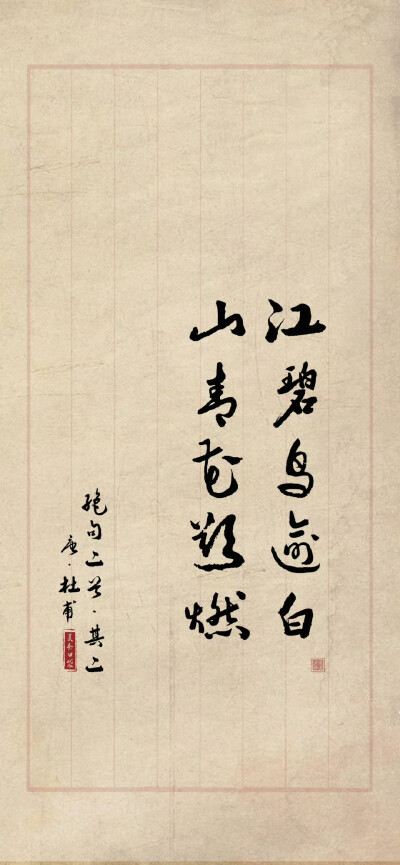 江碧鸟逾白
山青花欲燃
绝句二首·其二
唐·杜甫